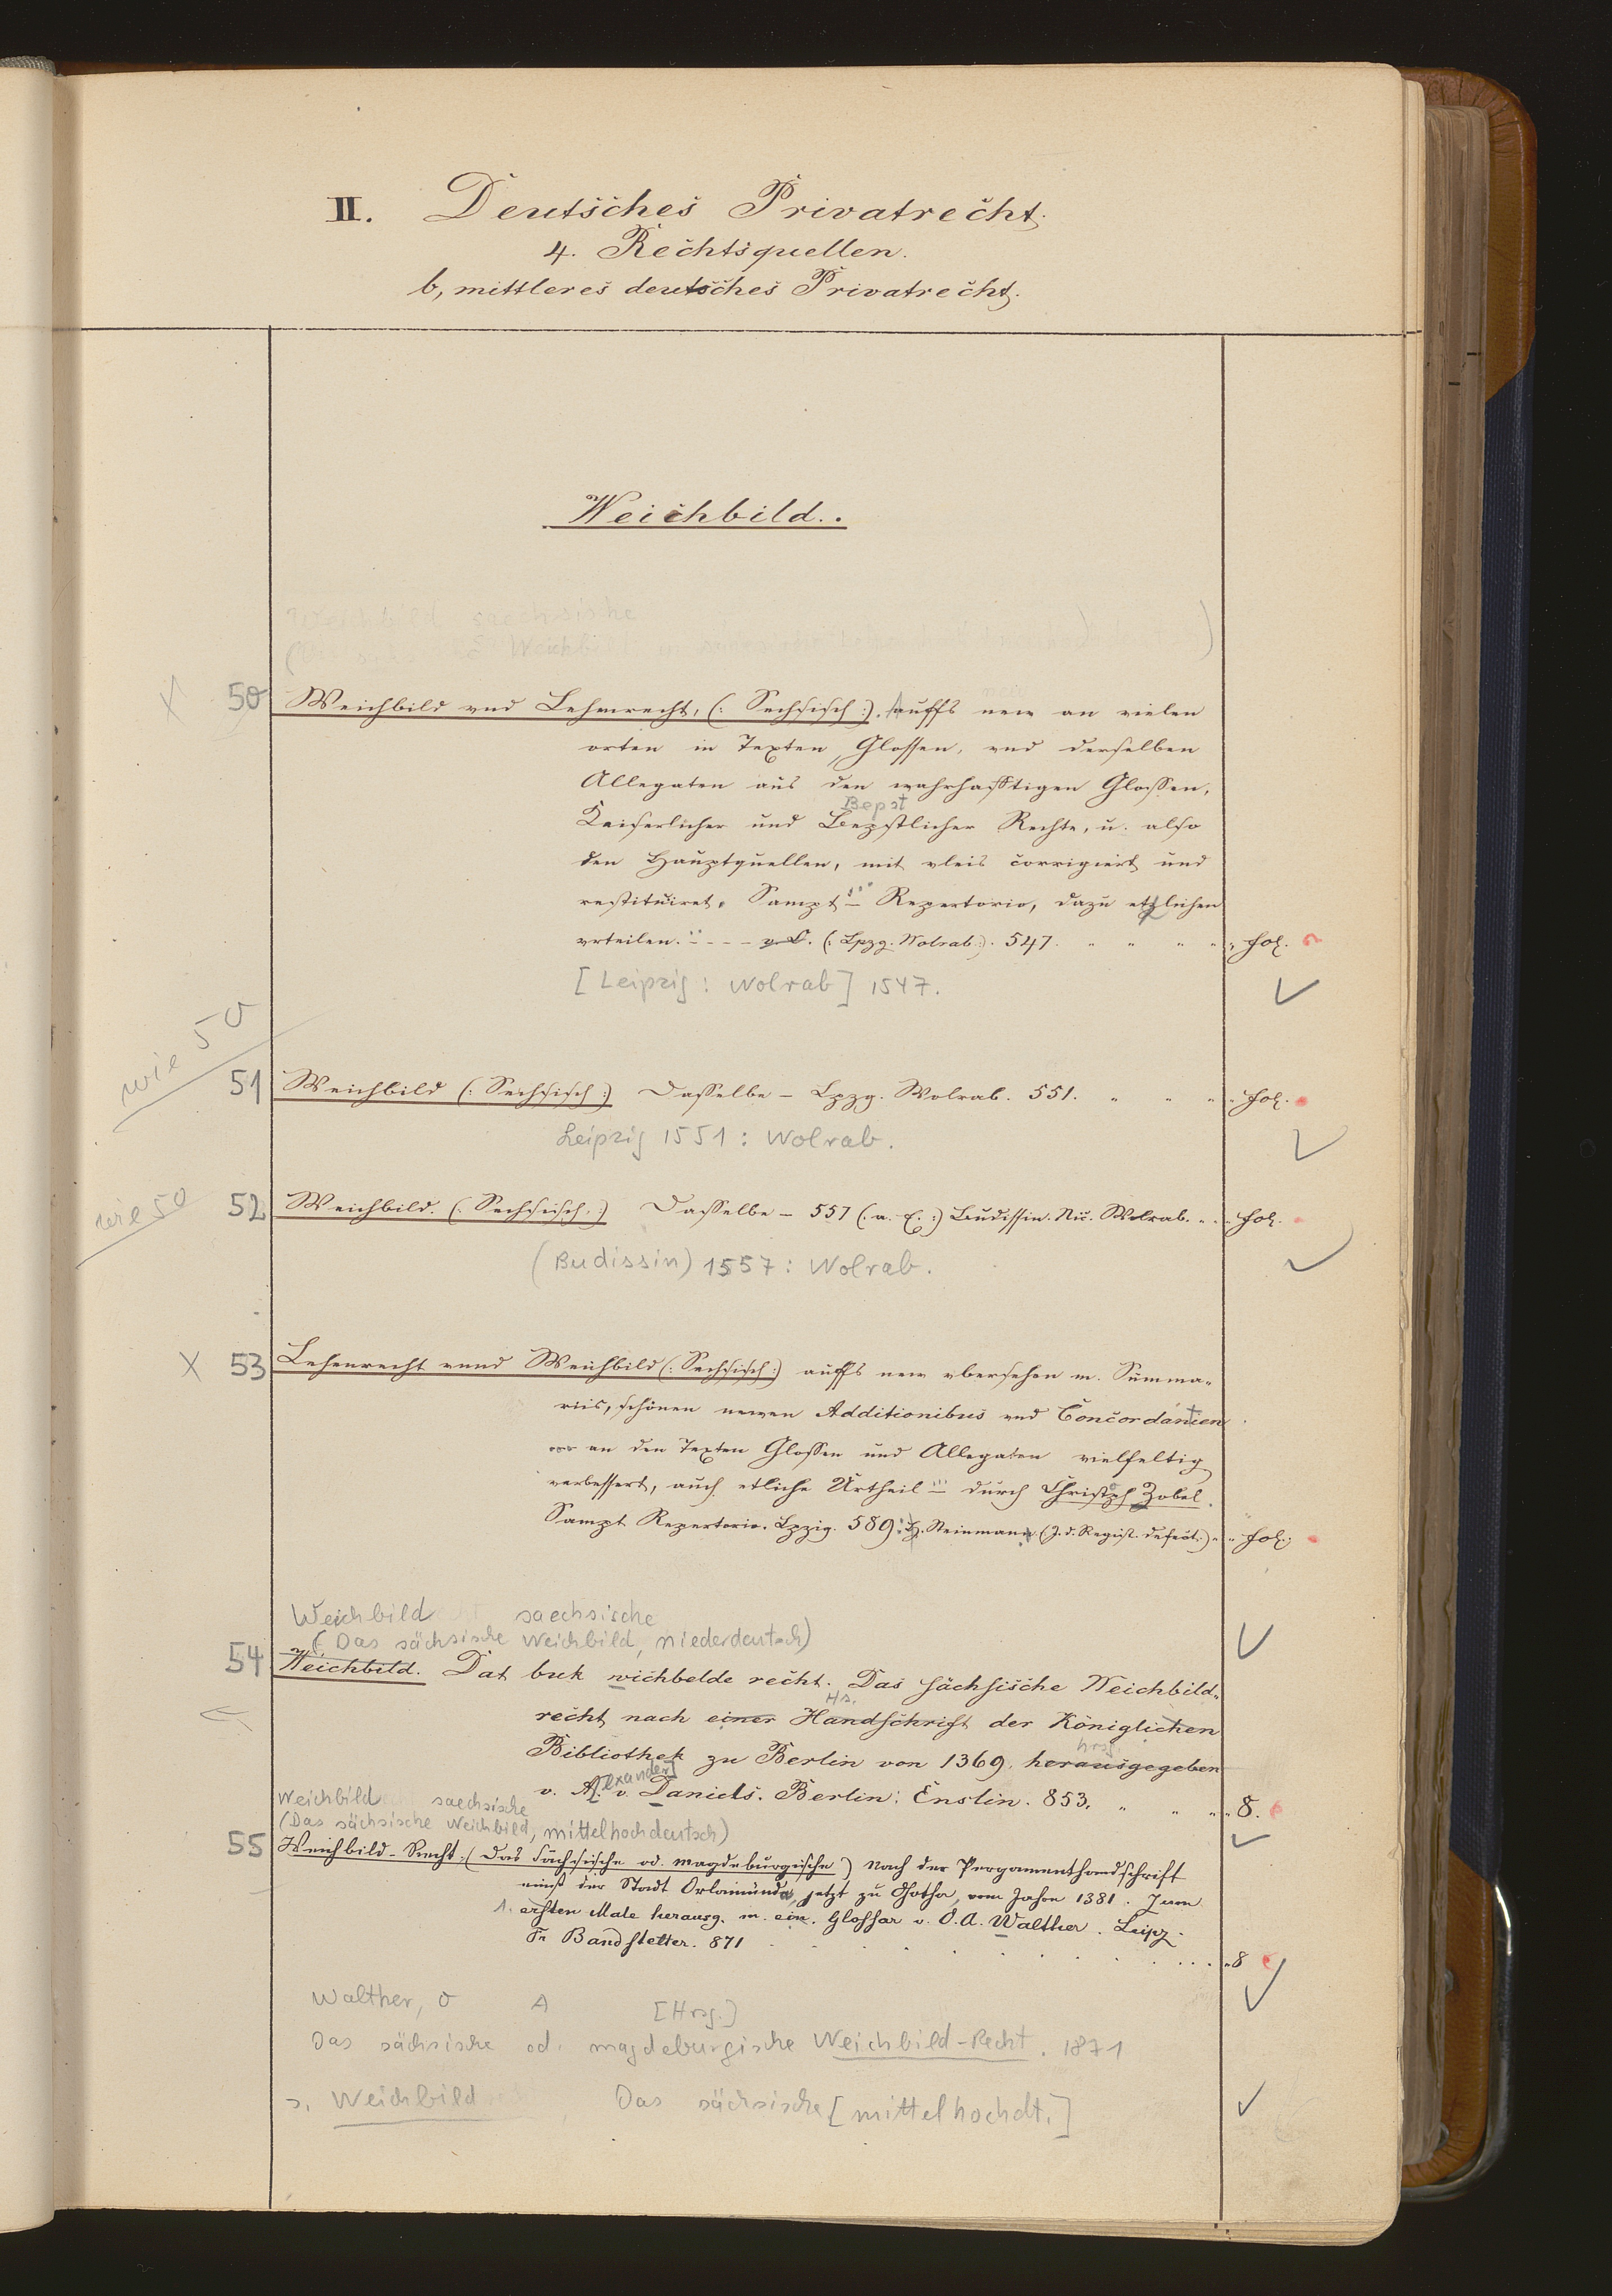 II. Deutsches Privatrecht.
4. Rechtsquellen.
b, mittleres deutsches Privatrecht.
Weichbild.
Weichbild saechsische
( Weichbild )
X 50 Weichbild vnd Lehnrecht, (: Sechsisch :). Auffs new an vielen
orten in Texten, Glossen, vnd derselben
Allegaten aus den wahrhafftigen Glossen,
Bepst
Kaiserlicher und Bepstlicher Rechte, u. also
den Hauptquellen, mit vleis corrigiert und
restituiret. Sampt ... Repertorio, dazu etzlichen
vrteilen. - - - - v. O. (: Lpzg. Wolrab :). 547. " " " " " fol.
[Leipzig: Wolrab] 1547.
wie 50
51 Weichbild (: Sechsisch :) Dasselbe – Lpzg. Wolrab. 551. " " " " fol.
Leipzig 1551: Wolrab.
wie 50
52 Weichbild. (: Sechsisch. :) Dasselbe – 557 (: a. E. :) Budissin. Nic. Wolrab. " " " fol.
(Budissin) 1557: Wolrab.
X 53 Lehenrecht vnnd Weichbild (: Sechsisch :) auffs new vbersehen m. Summa-
riis, schönen newen Additionibus vnd Concordantien
an den Texten Glossen und Allegaten vielfeltig
verbessert, auch etliche Urtheil ... durch Christoph Zobel.
Sampt Repertorio. Lpzig. 589. Steinmann (J. d. Regist. defect.) " " fol.
Weichbild saechsische
(Das sächsische Weichbild, niederdeutsch)
54 Weichbild. Dat buk wichbelde recht. Das sächsische Weichbild-
Hs.
recht nach einer Handschrift der Königlichen
hrsg.
Bibliothek zu Berlin von 1369, herausgegeben
[lexander]
v. A. v. Daniels. Berlin: Enslin. 853. " " " " 8.
Weichbild saechsische
(Das sächsische Weichbild, mittelhochdeutsch)
55 Weichbild-Recht, (Das sächsische od. magdeburgische) Nach der Pergamenthandschrift
einst der Stadt Orlamünda, jetzt zu Gotha, vom Jahre 1381. Zum
1. ersten Male herausg. m. ein. Glossar v. O. A. Walther. Leipz.
Fr. Bandstetter. 871 . . . . . . . . " 8
Walther, O A [Hrsg.]
Das sächsische od. magdeburgische Weichbild-Recht. 1871
s. Weichbild, Das sächsische [mittelhochdt.]